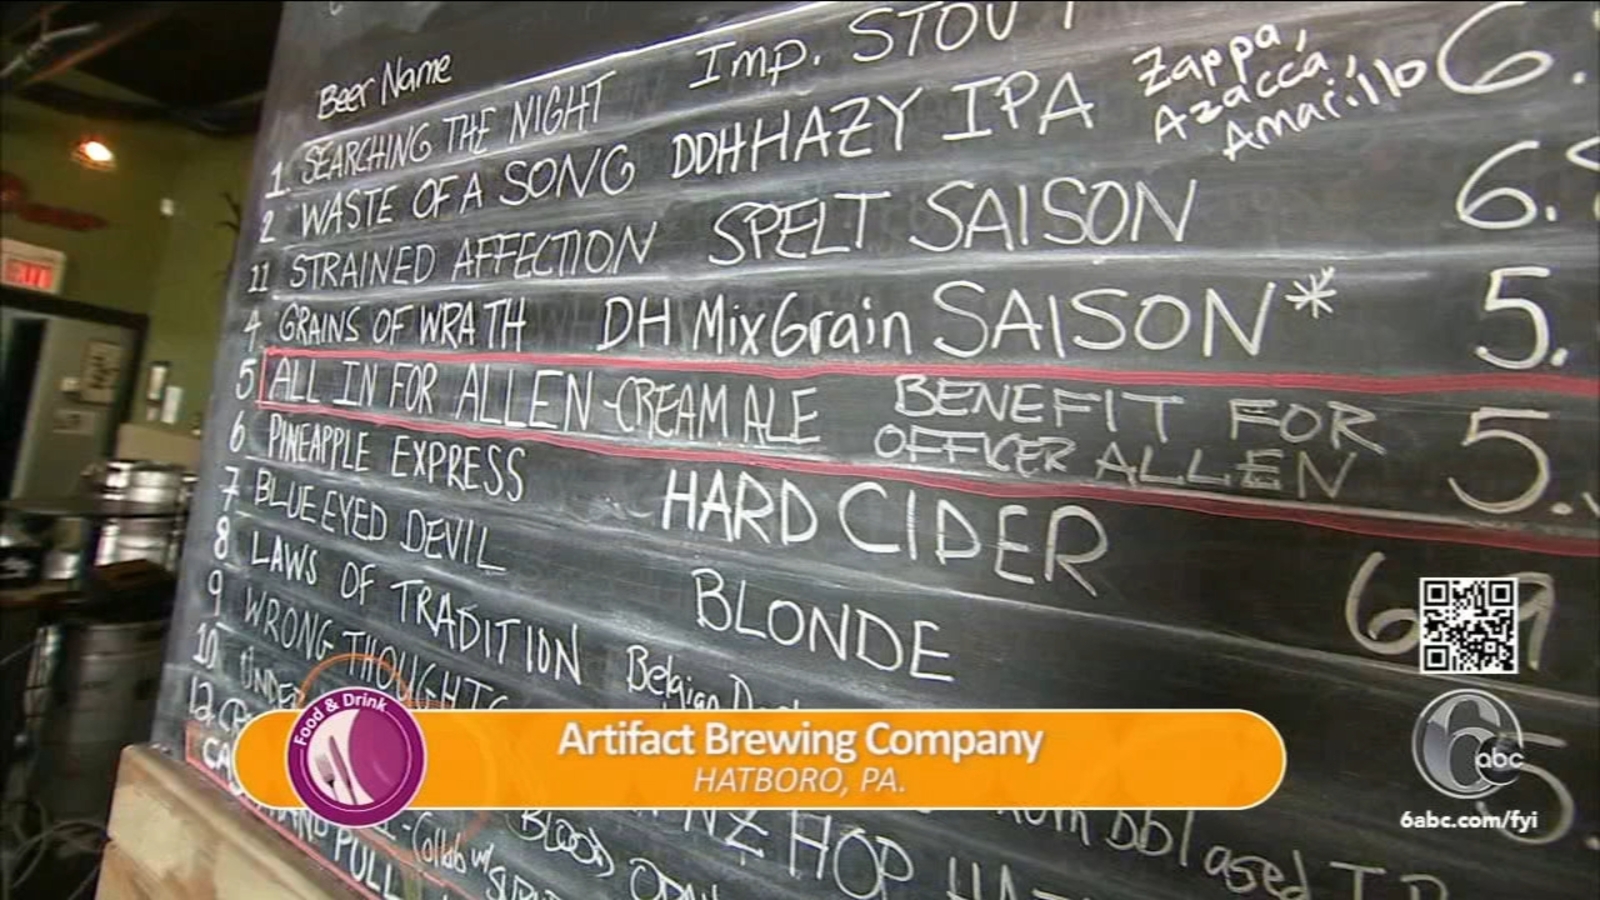 Beer Name
1. SEARCHING THE NIGHT Imp. STOUT
2 WASTE OF A SONG DDH HAZY IPA Zappa, Azacca, Amarillo 6.
11 STRAINED AFFECTION SPELT SAISON 6.
4 GRAINS OF WRATH DH MixGrain SAISON* 5.
5 ALL IN FOR ALLEN - CREAM ALE BENEFIT FOR OFFICER ALLEN 5.
6 PINEAPPLE EXPRESS HARD CIDER 6
7 BLUE EYED DEVIL BLONDE
8 LAWS OF TRADITION Belgian
9 WRONG THOUGHTS
10 UNDER
12
CA
HAND PULL - Collab w/
BLOOD
NZ HOP
EXIT
Food & Drink
Artifact Brewing Company
HATBORO, PA.
6 abc
6abc.com/fyi